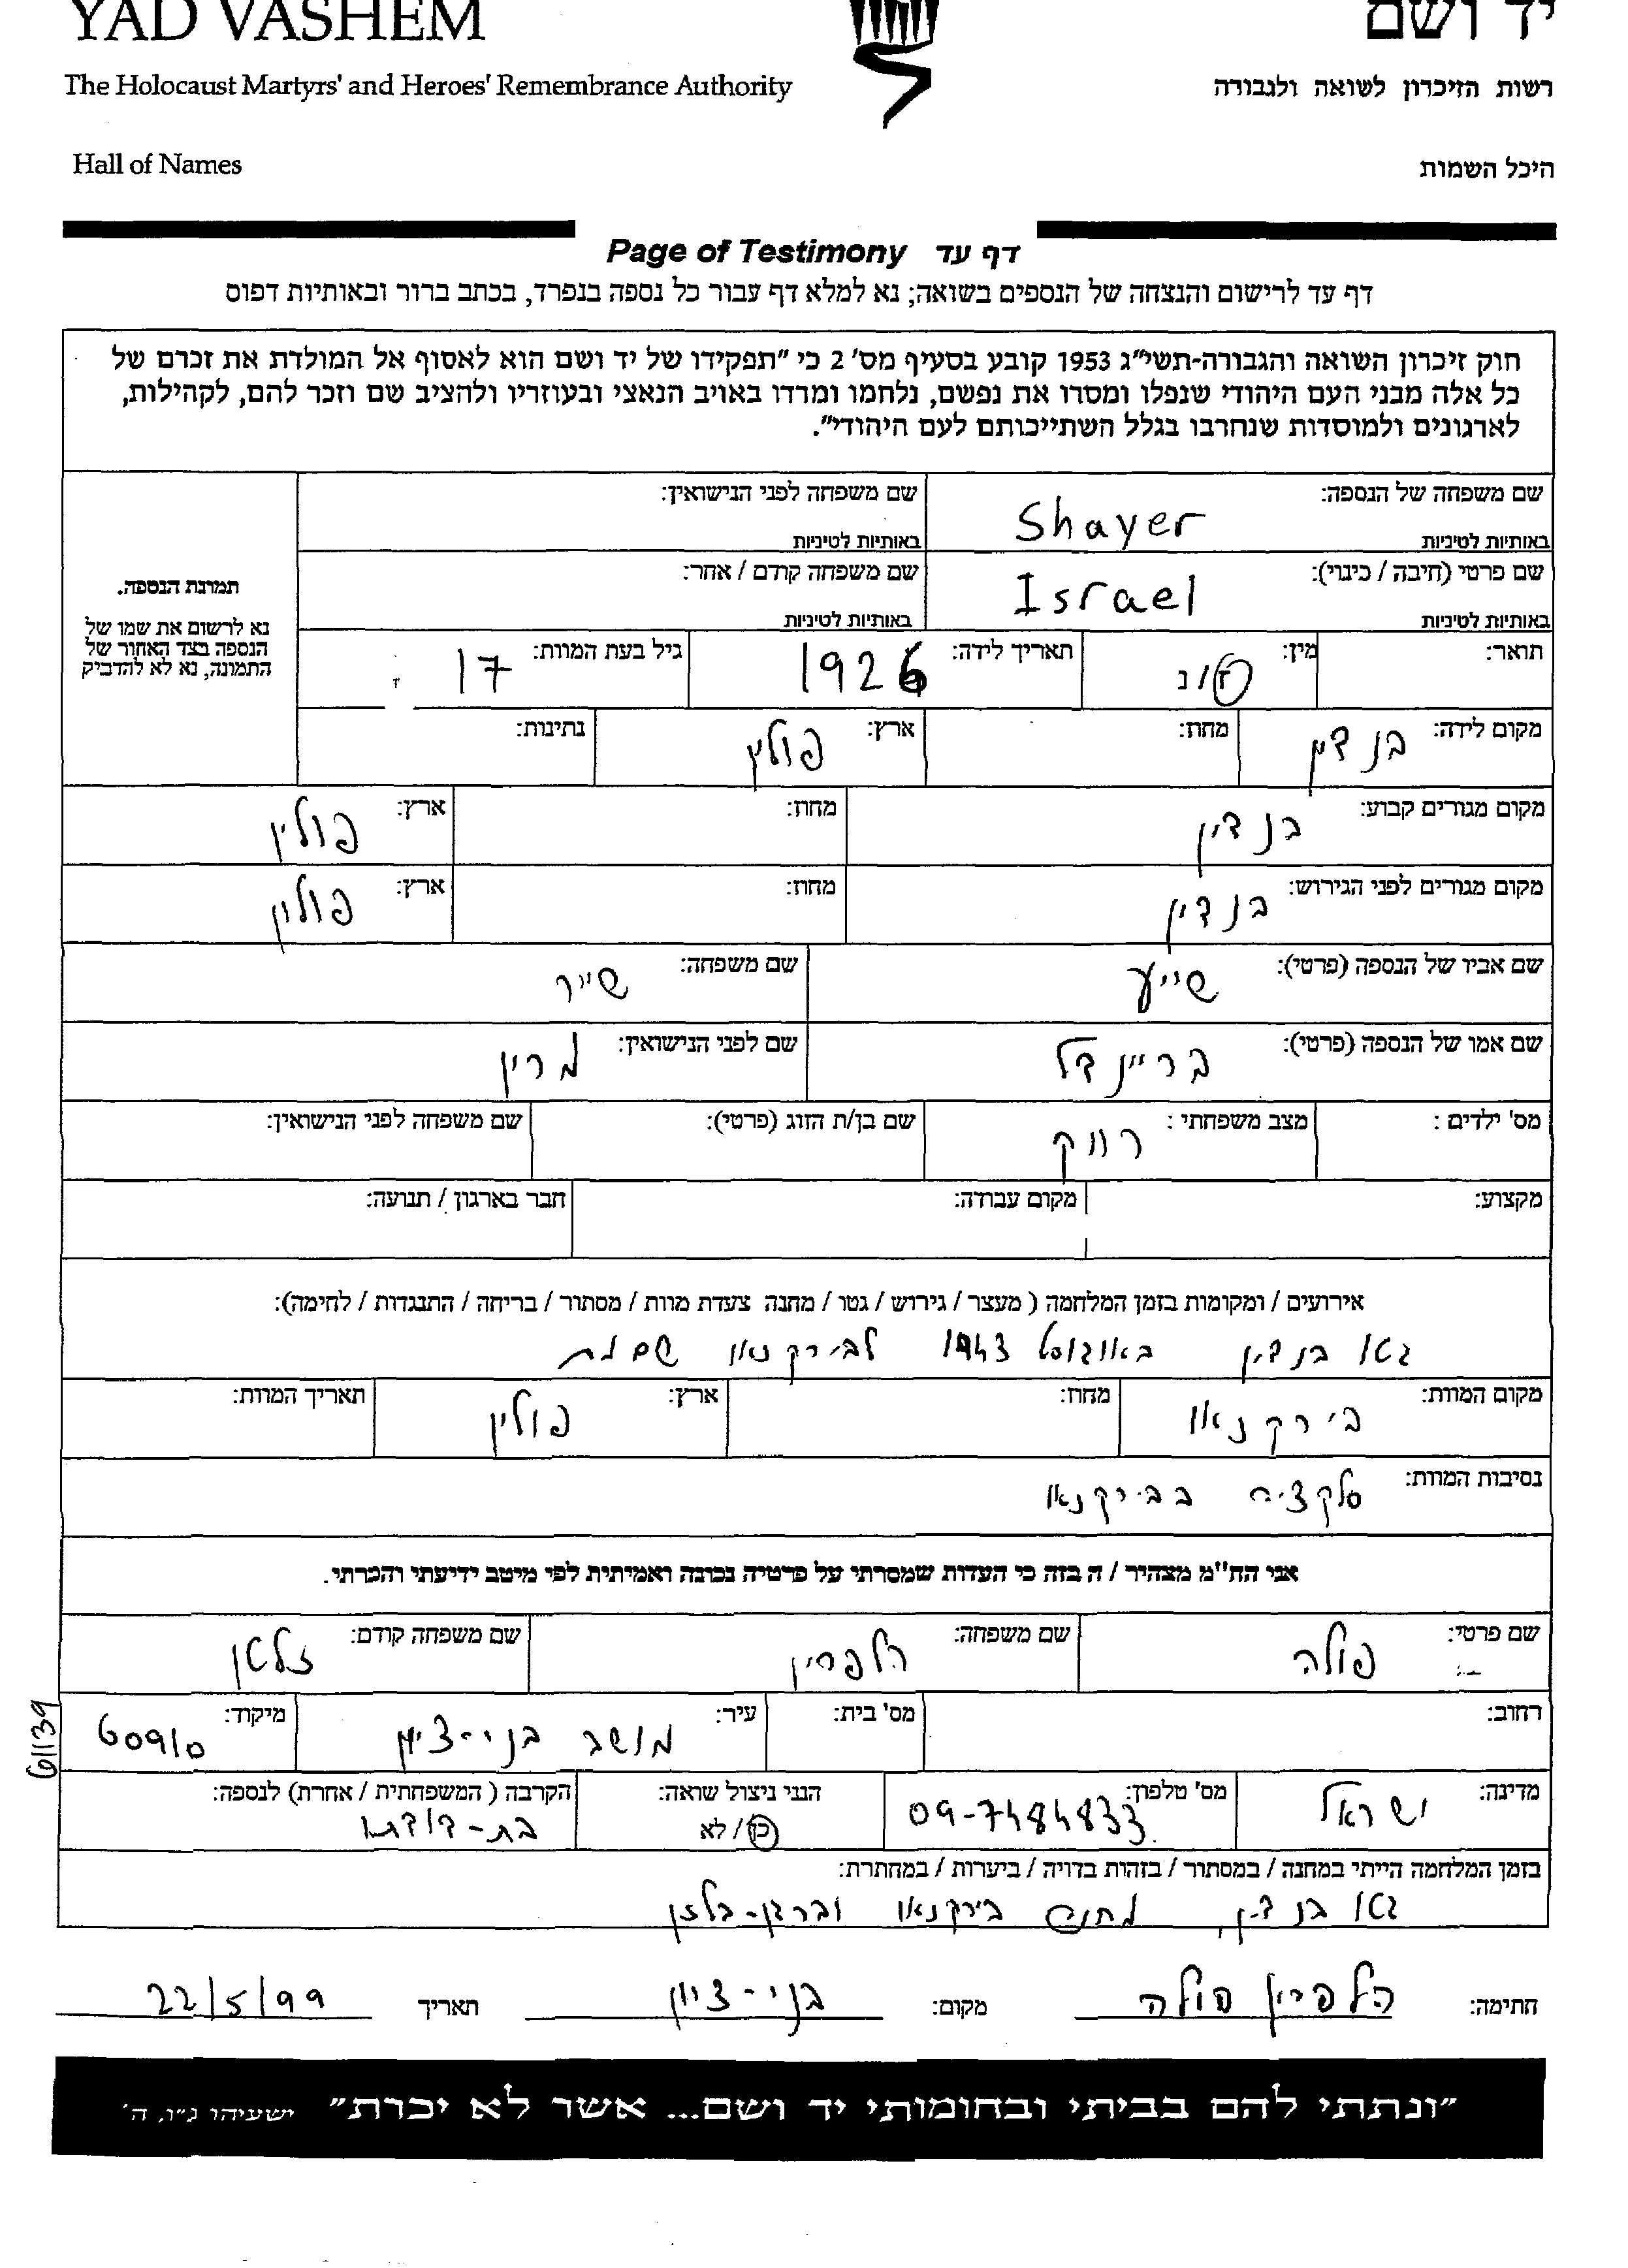 YAD VASHEM יד ושם
The Holocaust Martyrs' and Heroes' Remembrance Authority רשות הזיכרון לשואה ולגבורה
Hall of Names היכל השמות
Page of Testimony דף עד
דף עד לרישום והנצחה של הנספים בשואה; נא למלא דף עבור כל נספה בנפרד, בכתב ברור ובאותיות דפוס
חוק זיכרון השואה והגבורה-תשי"ג 1953 קובע בסעיף מס' 2 כי "תפקידו של יד ושם הוא לאסוף אל המולדת את זכרם של
כל אלה מבני העם היהודי שנפלו ומסרו את נפשם, נלחמו ומרדו באויב הנאצי ובעוזריו ולהציב שם וזכר להם, לקהילות,
לארגונים ולמוסדות שנחרבו בגלל השתייכותם לעם היהודי".
שם משפחה של הנספה: שם משפחה לפני הנישואין:
Shayer
באותיות לטיניות באותיות לטיניות
שם פרטי (חיבה / כינוי): שם משפחה קודם / אחר:
Israel
באותיות לטיניות באותיות לטיניות
תמונת הנספה.
נא לרשום את שמו של
הנספה בצד האחור של
התמונה, נא לא להדביק
תואר: מין: ז / נ תאריך לידה: 1926 גיל בעת המוות: 17
מקום לידה: בנדין מחוז: ארץ: פולין נתינות:
מקום מגורים קבוע: בנדין מחוז: ארץ: פולין
מקום מגורים לפני הגירוש: בנדין מחוז: ארץ: פולין
שם אביו של הנספה (פרטי): שייע שם משפחה: שייר
שם אמו של הנספה (פרטי): בריינדל שם לפני הנישואין: מרין
מס' ילדים : מצב משפחתי : רווק שם בן/ת הזוג (פרטי): שם משפחה לפני הנישואין:
מקצוע: מקום עבודה: חבר בארגון / תנועה:
אירועים / ומקומות בזמן המלחמה ( מעצר / גירוש / גטו / מחנה צעדת מוות / מסתור / בריחה / התנגדות / לחימה):
גטו בנדין באוגוסט 1943 לבירקנאו שם מת
מקום המוות: בירקנאו מחוז: ארץ: פולין תאריך המוות:
נסיבות המוות: סלקציה בבירקנאו
אני הח"מ מצהיר / ה בזה כי העדות שמסרתי על פרטיה נכונה ואמיתית לפי מיטב ידיעתי והכרתי.
שם פרטי: פולה שם משפחה: הלפרין שם משפחה קודם: זלטן
רחוב: מס' בית: עיר: מושב בני-ציון מיקוד: 60910
61139
מדינה: ישראל מס' טלפון: 09-7484833 הנני ניצול שואה: כן / לא הקרבה ( המשפחתית / אחרת) לנספה: בת-דודתו
בזמן המלחמה הייתי במחנה / במסתור / בזהות בדויה / ביערות / במחתרת:
גטו בנדין, מחנה בירקנאו וברגן-בלזן
חתימה: הלפרין פולה מקום: בני-ציון תאריך 22/5/99
"ונתתי להם בביתי ובחומותי יד ושם... אשר לא יכרת" ישעיהו נ"ו, ה'